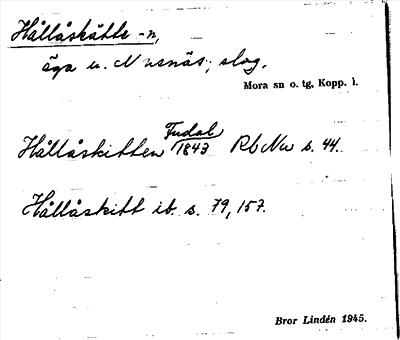 Hållåskätte -n,
äga u. Nusnäs, slog.
Mora sn o. tg, Kopp. l.
Hållåskitten Fudal 1843 Rb Nu s. 44.
Hållåskitt ib. s. 79, 157.
Bror Lindén 1945.